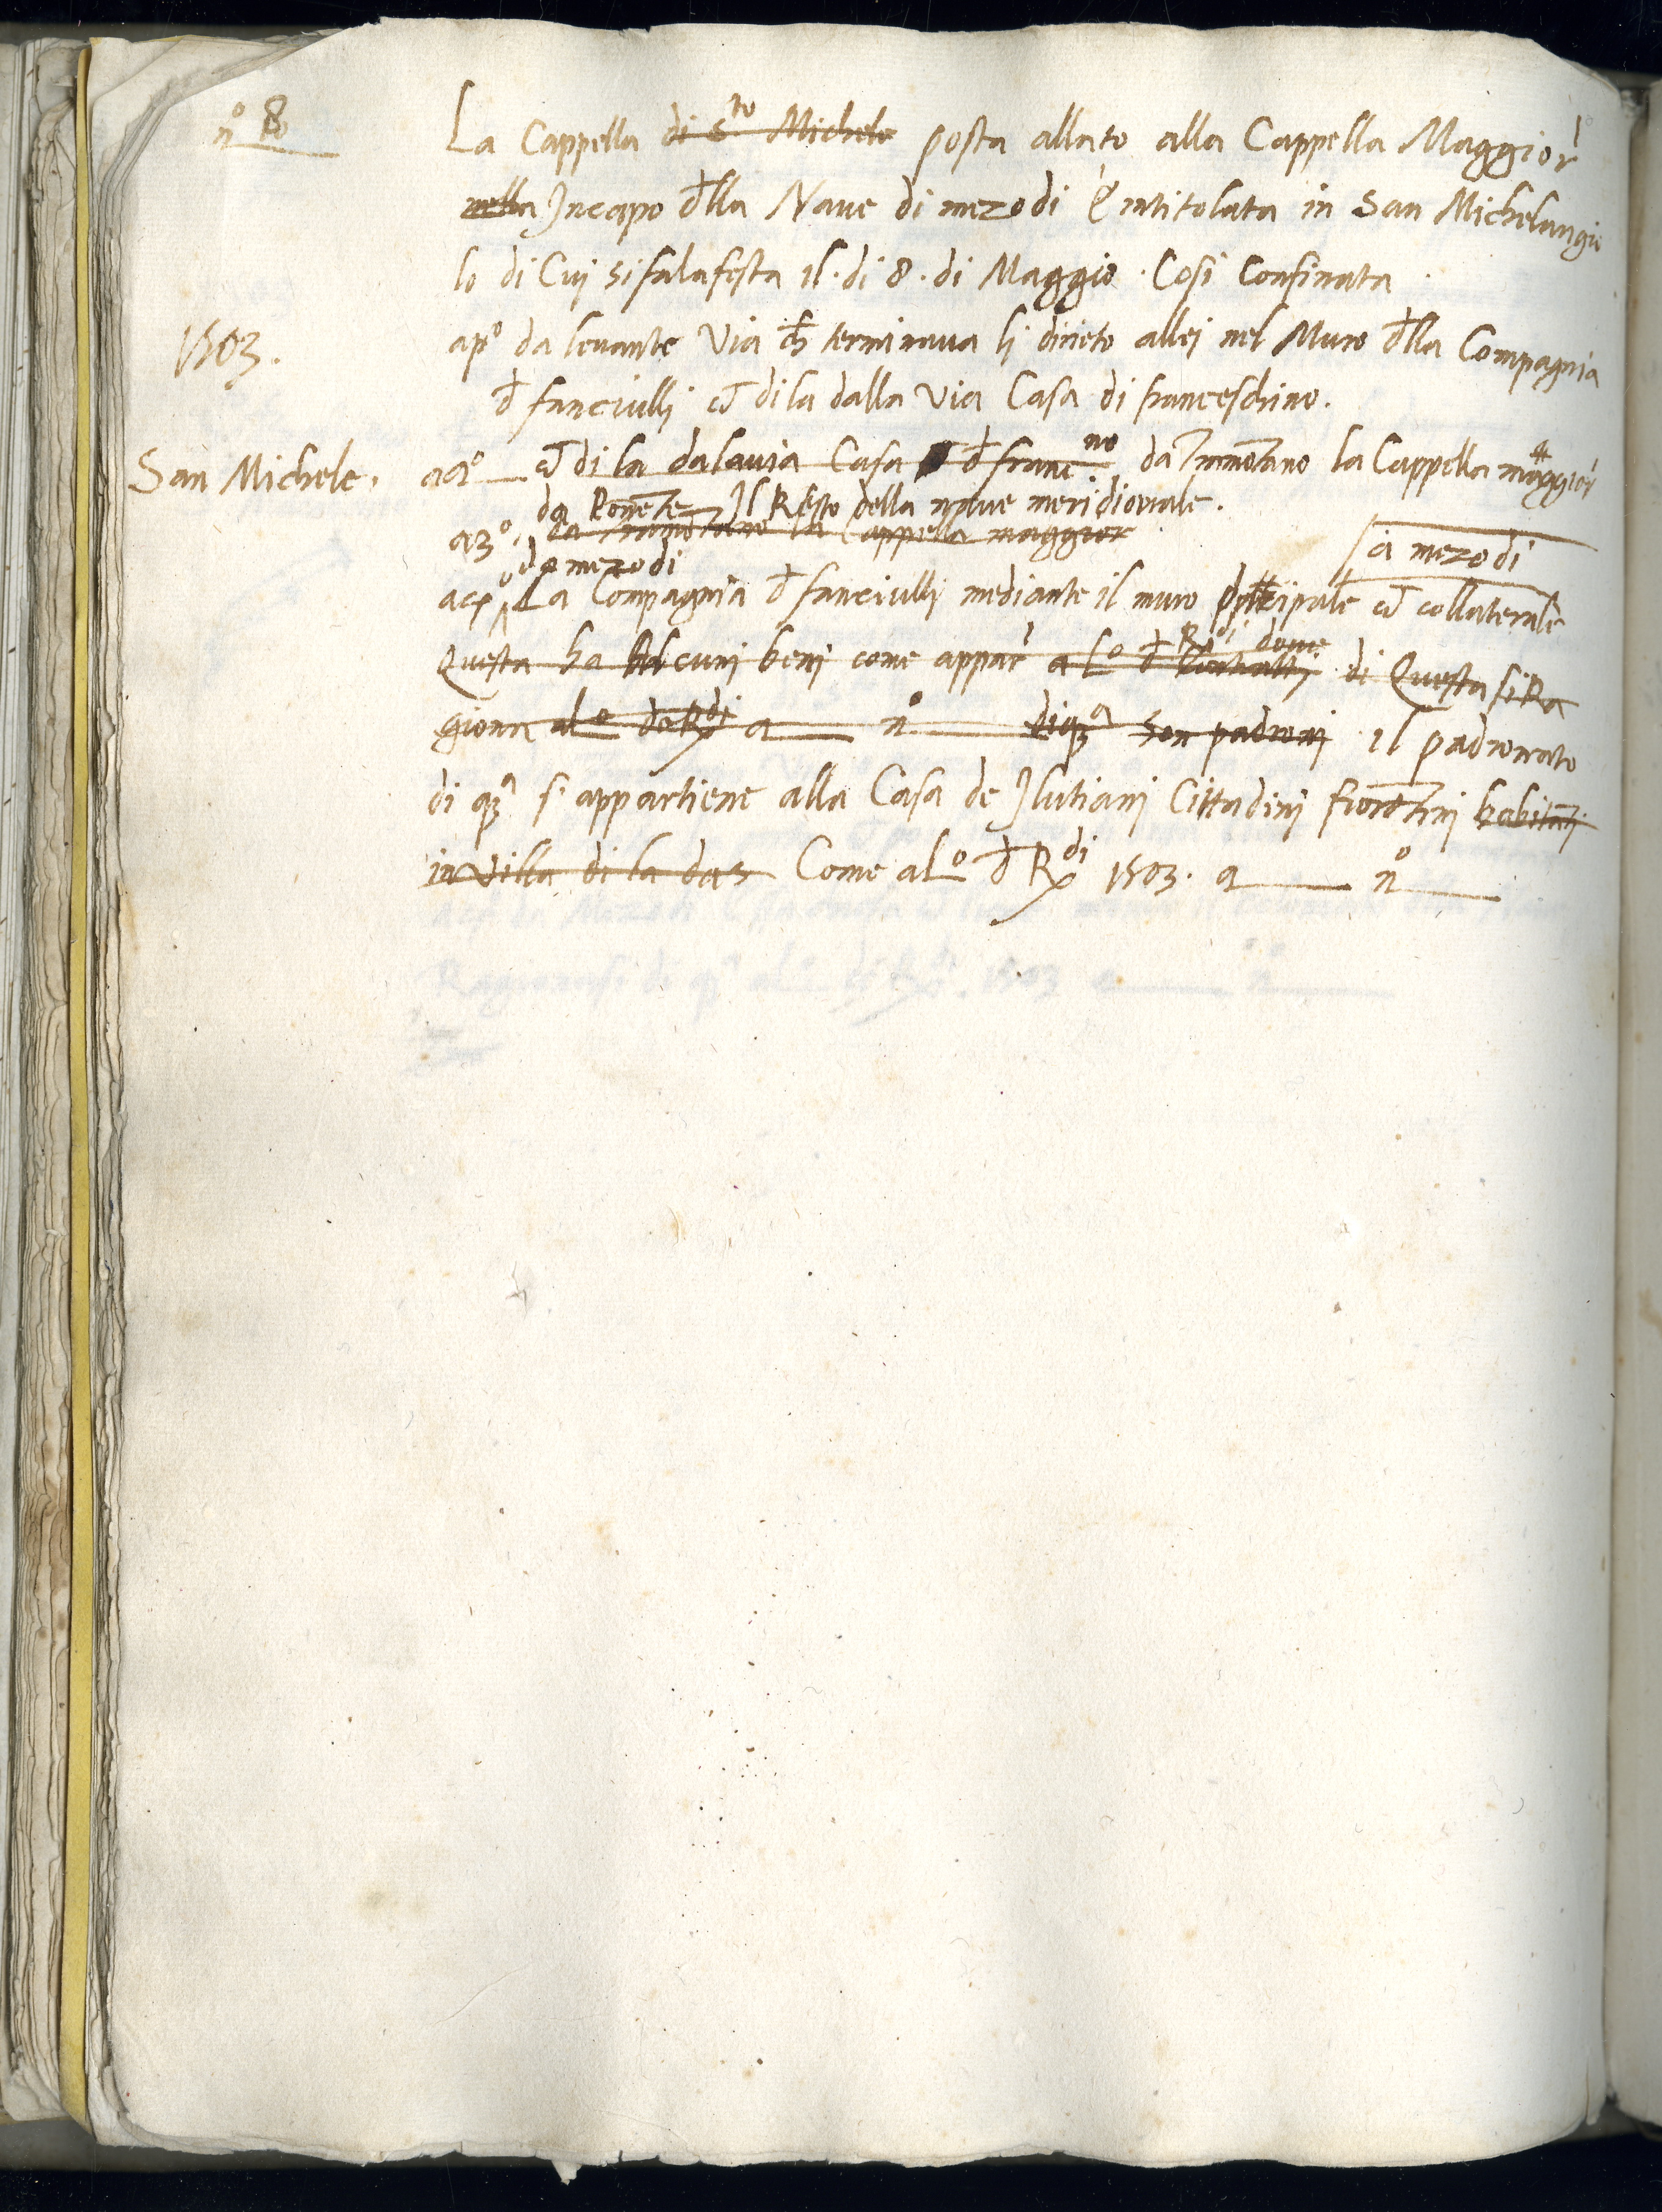 nº 8
La Cappella di Sto Michele posta allato alla Cappella Maggior
nella Incapo dlla Naue di mezodi È intitolata in San Michelangio
lo di Cuj si fa la festa il · di 8 · di Maggio · Cosi Confinata
1503.
apº da leuante Via ch terminaua lj drieto allej nel Muro dlla Compagnia
d fanciullj et di la dalla via Casa di franceschino.
San Michele.
a2º et di la dalauia Casa d francno da Tramotano la Cappella maggior
da Ponete Il Resto della naue meridionale.
a3º. da Tramotano la Cappella maggior
da mezodi
a mezo di
a4º La Compagnia d fanciullj mediante il muro pricipale et collaterale
Rdi doue
Questa ha alcunj benj come appar a Lº d Contrattj di Questa si Ra
giona al º da Rdi a nº di qa son padronj · il padronato
di qa si appartiene alla Casa de Ilutianj Cittadinj fiorētinj habitātj
in Villa di la da s Come a Lº d Rdi 1503. a nº